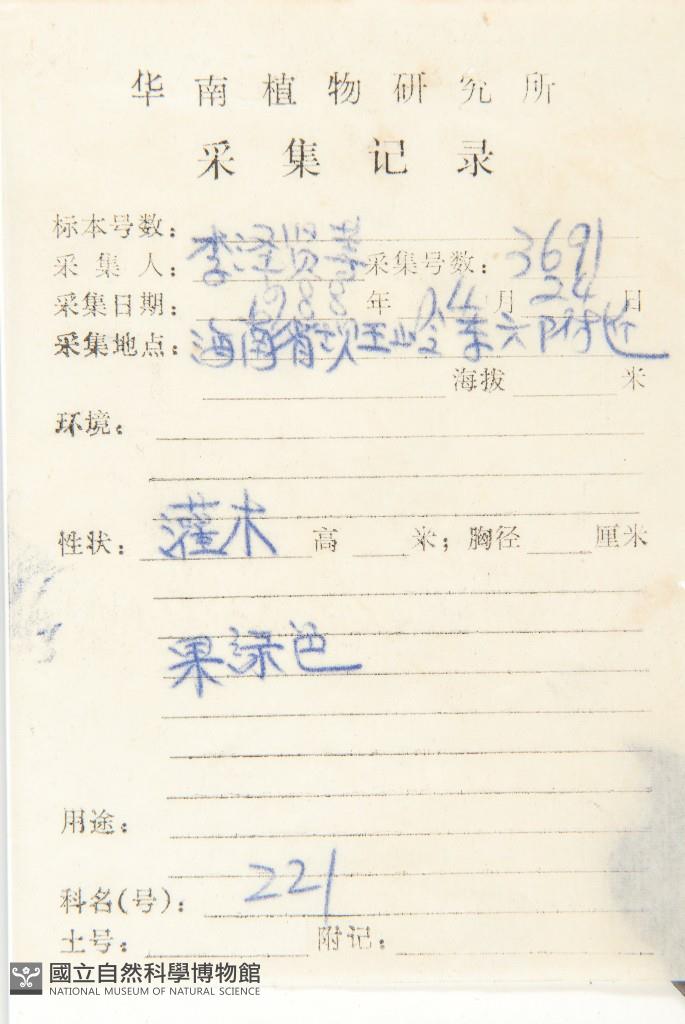 华南植物研究所
采集记录
标本号数：
采集人：李泽贤等 采集号数：3691
采集日期：1988年04月24日
采集地点：海南省坝王岭东六附近
海拨 米
环境：
性状：灌木 高 米；胸径 厘米
果绿色
用途：
科名(号)：221
土号： 附记：
國立自然科學博物館
NATIONAL MUSEUM OF NATURAL SCIENCE